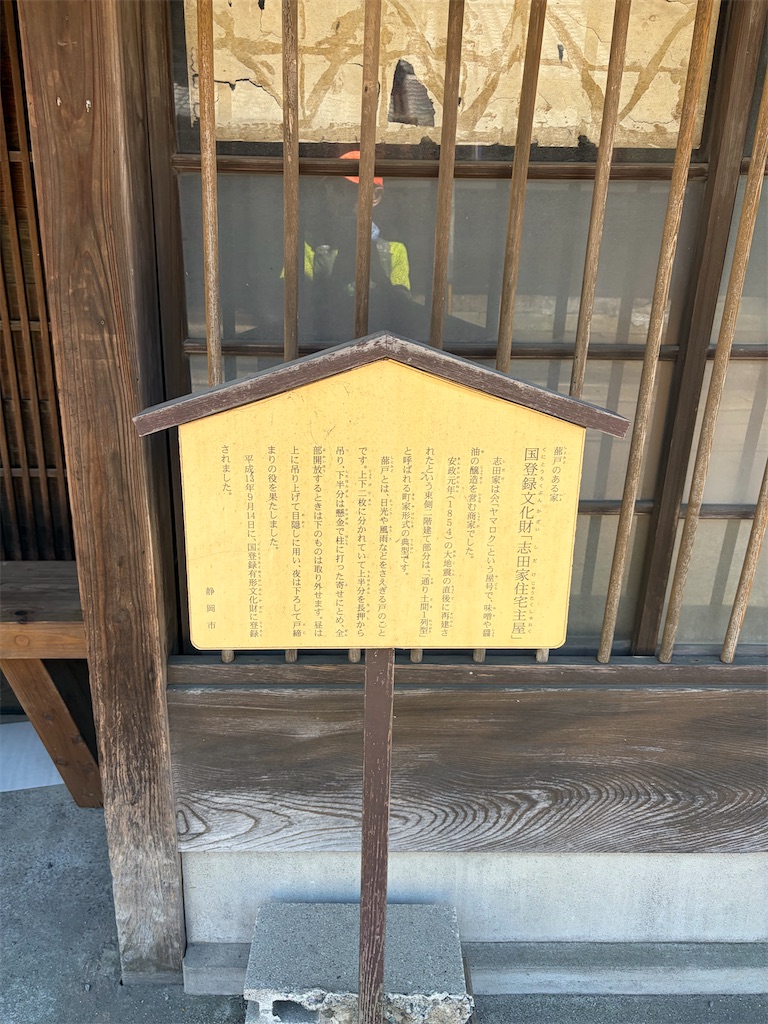 蔀戸のある家
国登録文化財「志田家住宅主屋」
志田家は㕣(ヤマロク)という屋号で、味噌や醤
油の醸造を営む商家でした。
安政元年(1854)の大地震の直後に再建さ
れたという東側二階建て部分は、「通り土間1列型」
と呼ばれる町家形式の典型です。
蔀戸とは、日光や風雨などをさえぎる戸のこと
です。上下二枚に分かれていて上半分を長押から
吊り、下半分は懸金で柱に打った寄せにとめ、全
部開放するときは下のものは取り外せます。昼は
上に吊り上げて目隠しに用い、夜は下ろして戸締
まりの役を果たしました。
平成13年9月14日に、国登録有形文化財に登録
されました。
静岡市